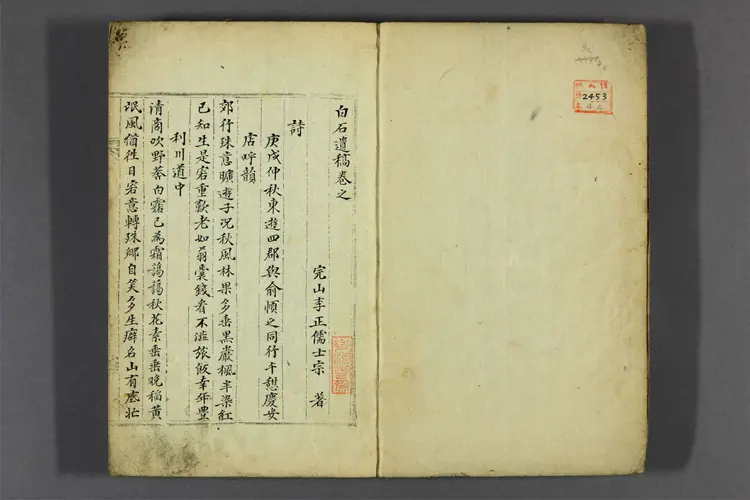 白石遺稿卷之
完山李正儒士宗 著
詩
庚戌仲秋東遊四郡與俞愼之同行午憇慶安
店呼韻
郊行殊意曠遊子况秋風林果多垂黑巖楓半染紅
已知生是客重歎老如翁囊錢看不澁旅飯幸年豊
利川道中
清商吹野黍白露已為霜藹藹秋花素垂垂晚稲黄
氓風猶徃日客意轉殊鄉自笑多生癖名山有底忙
2453